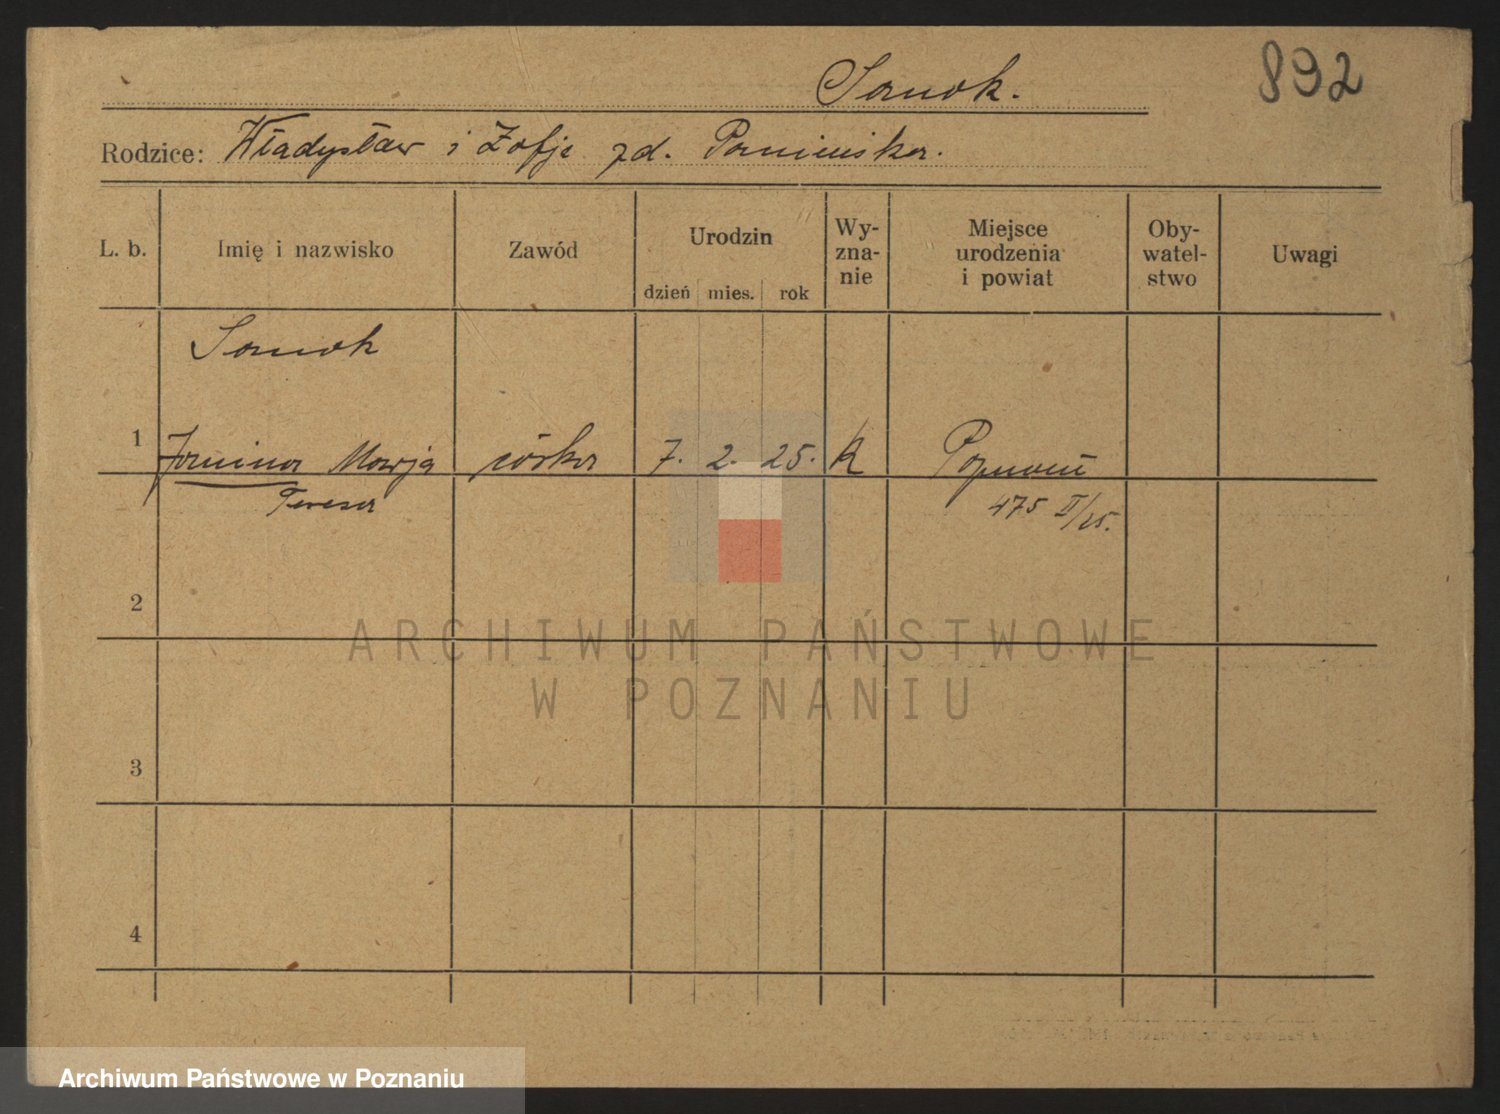 892
Sanok.
Rodzice: Władysław i Zofja zd.
L. b. Imię i nazwisko Zawód Urodzin dzień mies. rok Wy-zna-nie Miejsce urodzenia i powiat Oby-watel-stwo Uwagi
Sanok
1 Janina Marja córka 7. 2. 25. K Poznań
Teresa 475 II/25.
2
ARCHIWUM PAŃSTWOWE
W POZNANIU
3
4
Archiwum Państwowe w Poznaniu